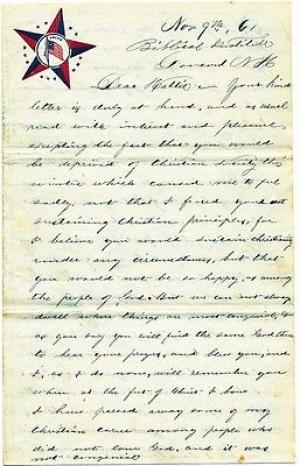 Nov 9th, 61
Biblical Institute
Concord N H
Dear Hattie Your kind
letter is duly at hand, and as usual
read with interest and pleasure,
excepting the fact that you would
be deprived of Christian society this
winter which caused me to feel
sadly, not that I feared your not
sustaining Christian principles, for
I believe you would sustain Christianity
under any circumstances, but that
you would not be so happy, as among
the people of God. But we can not always
dwell where things are most congenial, &
as you say you will find the same God there
to hear your prayers, and bless you, and
I, as I do now, will remember you
when at the feet of Christ I bow.
I have passed away some of my
Christian career among people who
did not love God, and it was
not congenial